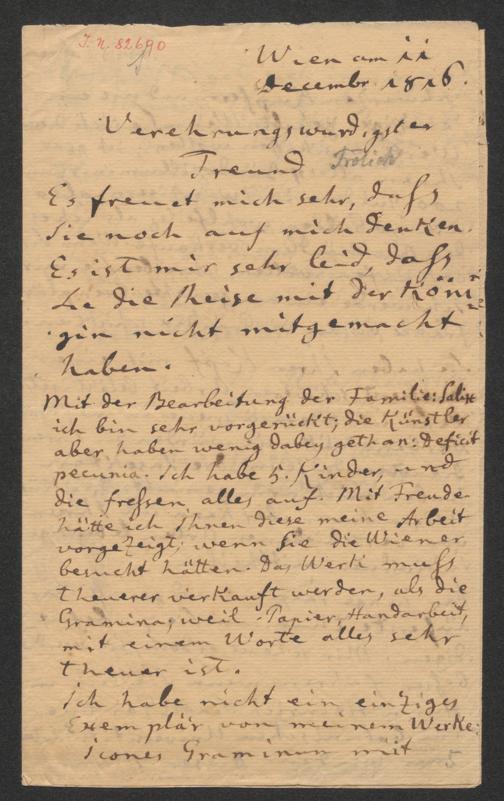 I. N. 82690
Wien am 11
Decembr 1816.
Verehrungswürdigster
Freund Frölich
Es freuet mich sehr, dass
Sie noch auf mich denken.
Es ist mir sehr leid, dass
Sie die Reise mit der Köni-
gin nicht mitgemacht
haben.
Mit der Bearbeitung der Familie: Salix
ich bin sehr vorgerückt; die Künstler
aber haben wenig dabey gethan: Deficit
pecunia. Ich habe 5. Kinder, und
die fressen alles auf. Mit Freude
hätte ich Ihnen diese meine Arbeit
vorgezeigt, wenn Sie die Wiener
besucht hätten. Das Werk muss
theuerer verkauft werden, als die
Gramina, weil Papier, Handarbeit,
mit einem Worte alles sehr
theuer ist.
Ich habe nicht ein einziges
Exemplär von meinem Werke:
Icones Graminum mit